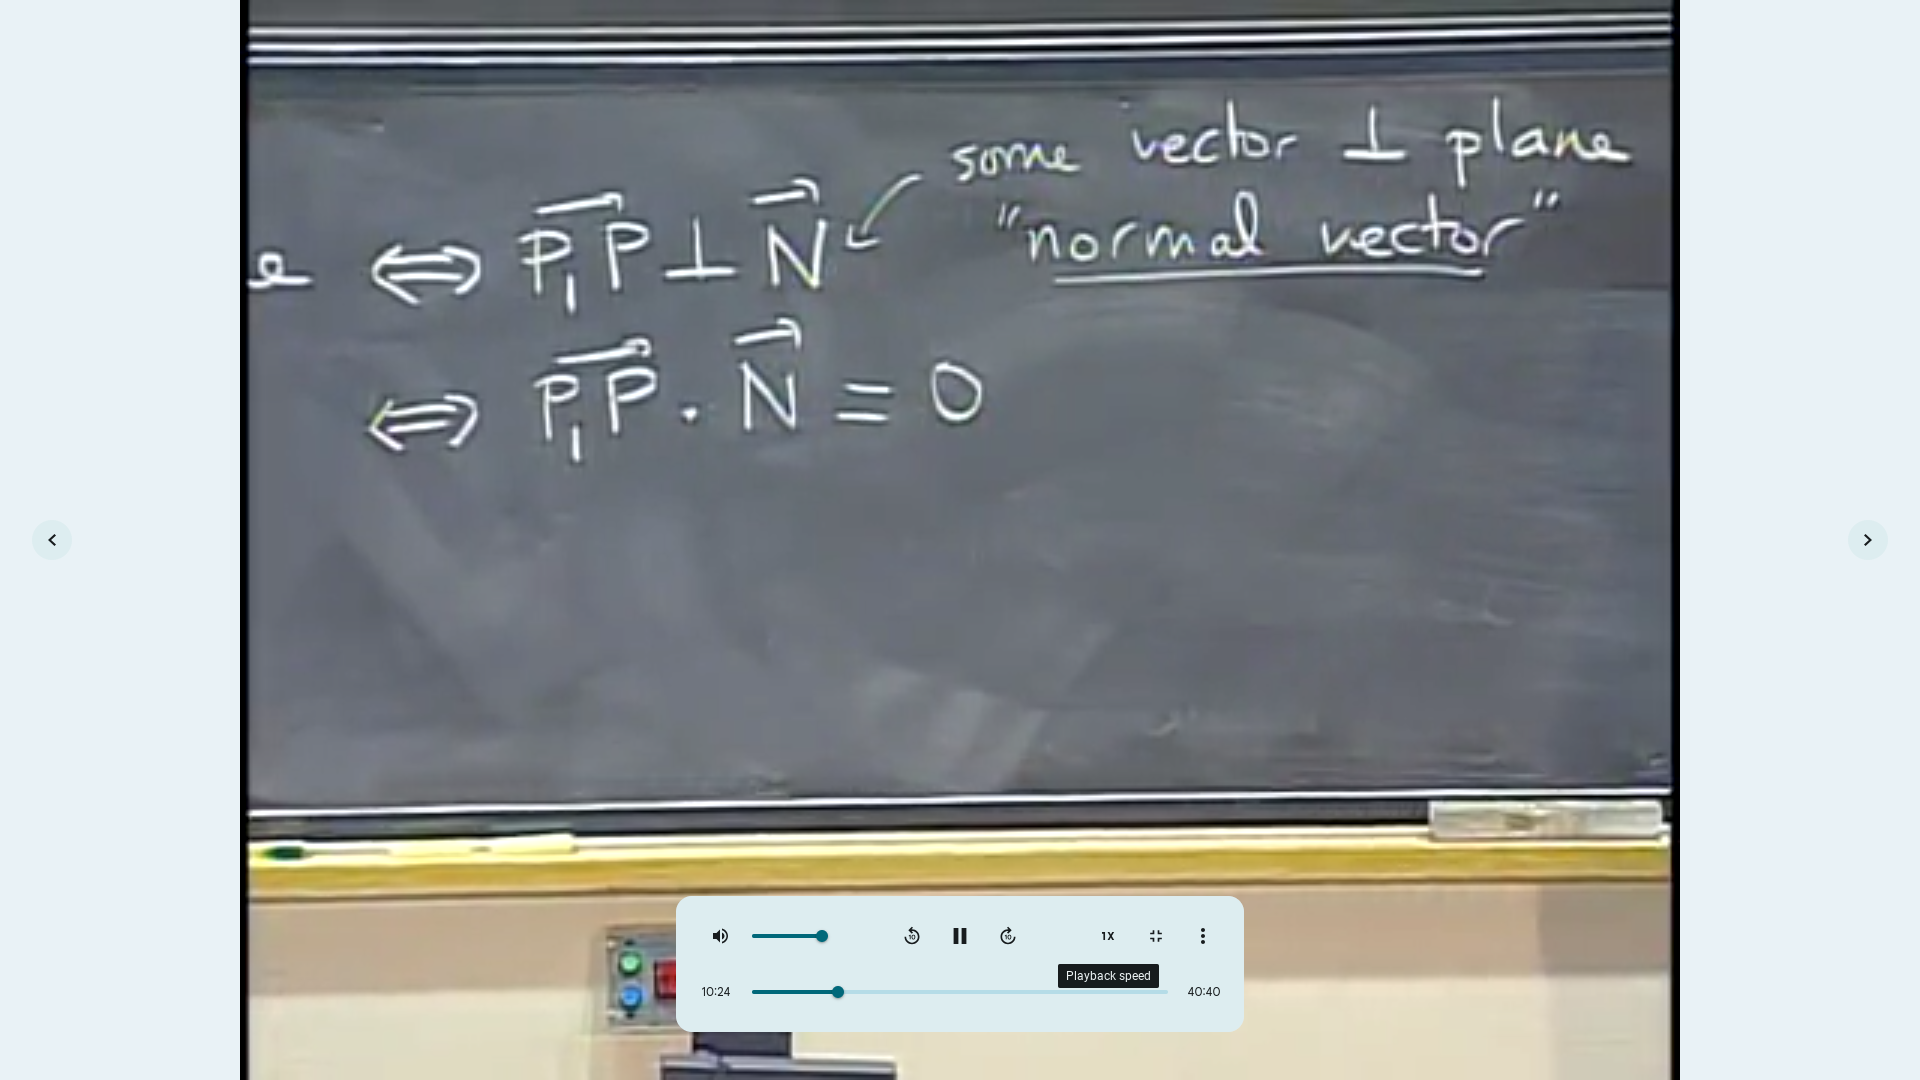 some vector ⊥ plane
e ⇔ P₁P⃗ ⊥ N⃗ "normal vector"
⇔ P₁P⃗ · N⃗ = 0
1X
Playback speed
10:24
40:40